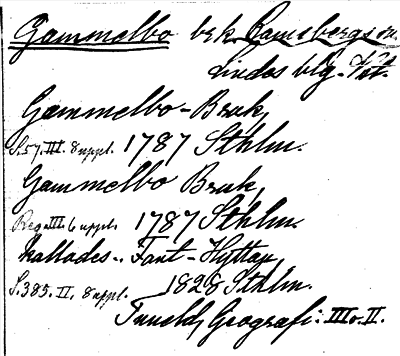 Gammelbo brk. Ramsbergs sn.
Lindes blg. Vst.
Gammelbo-Bruk,
S.57.III. 8 uppl. 1787 Sthlm.
Gammelbo Bruk,
Reg. III. 6 uppl. 1787 Sthlm.
kallades.. Fant-Hyttan,
S.385. II. 8 uppl. 1828 Sthlm.
Tunelds Geografi: III o. II.